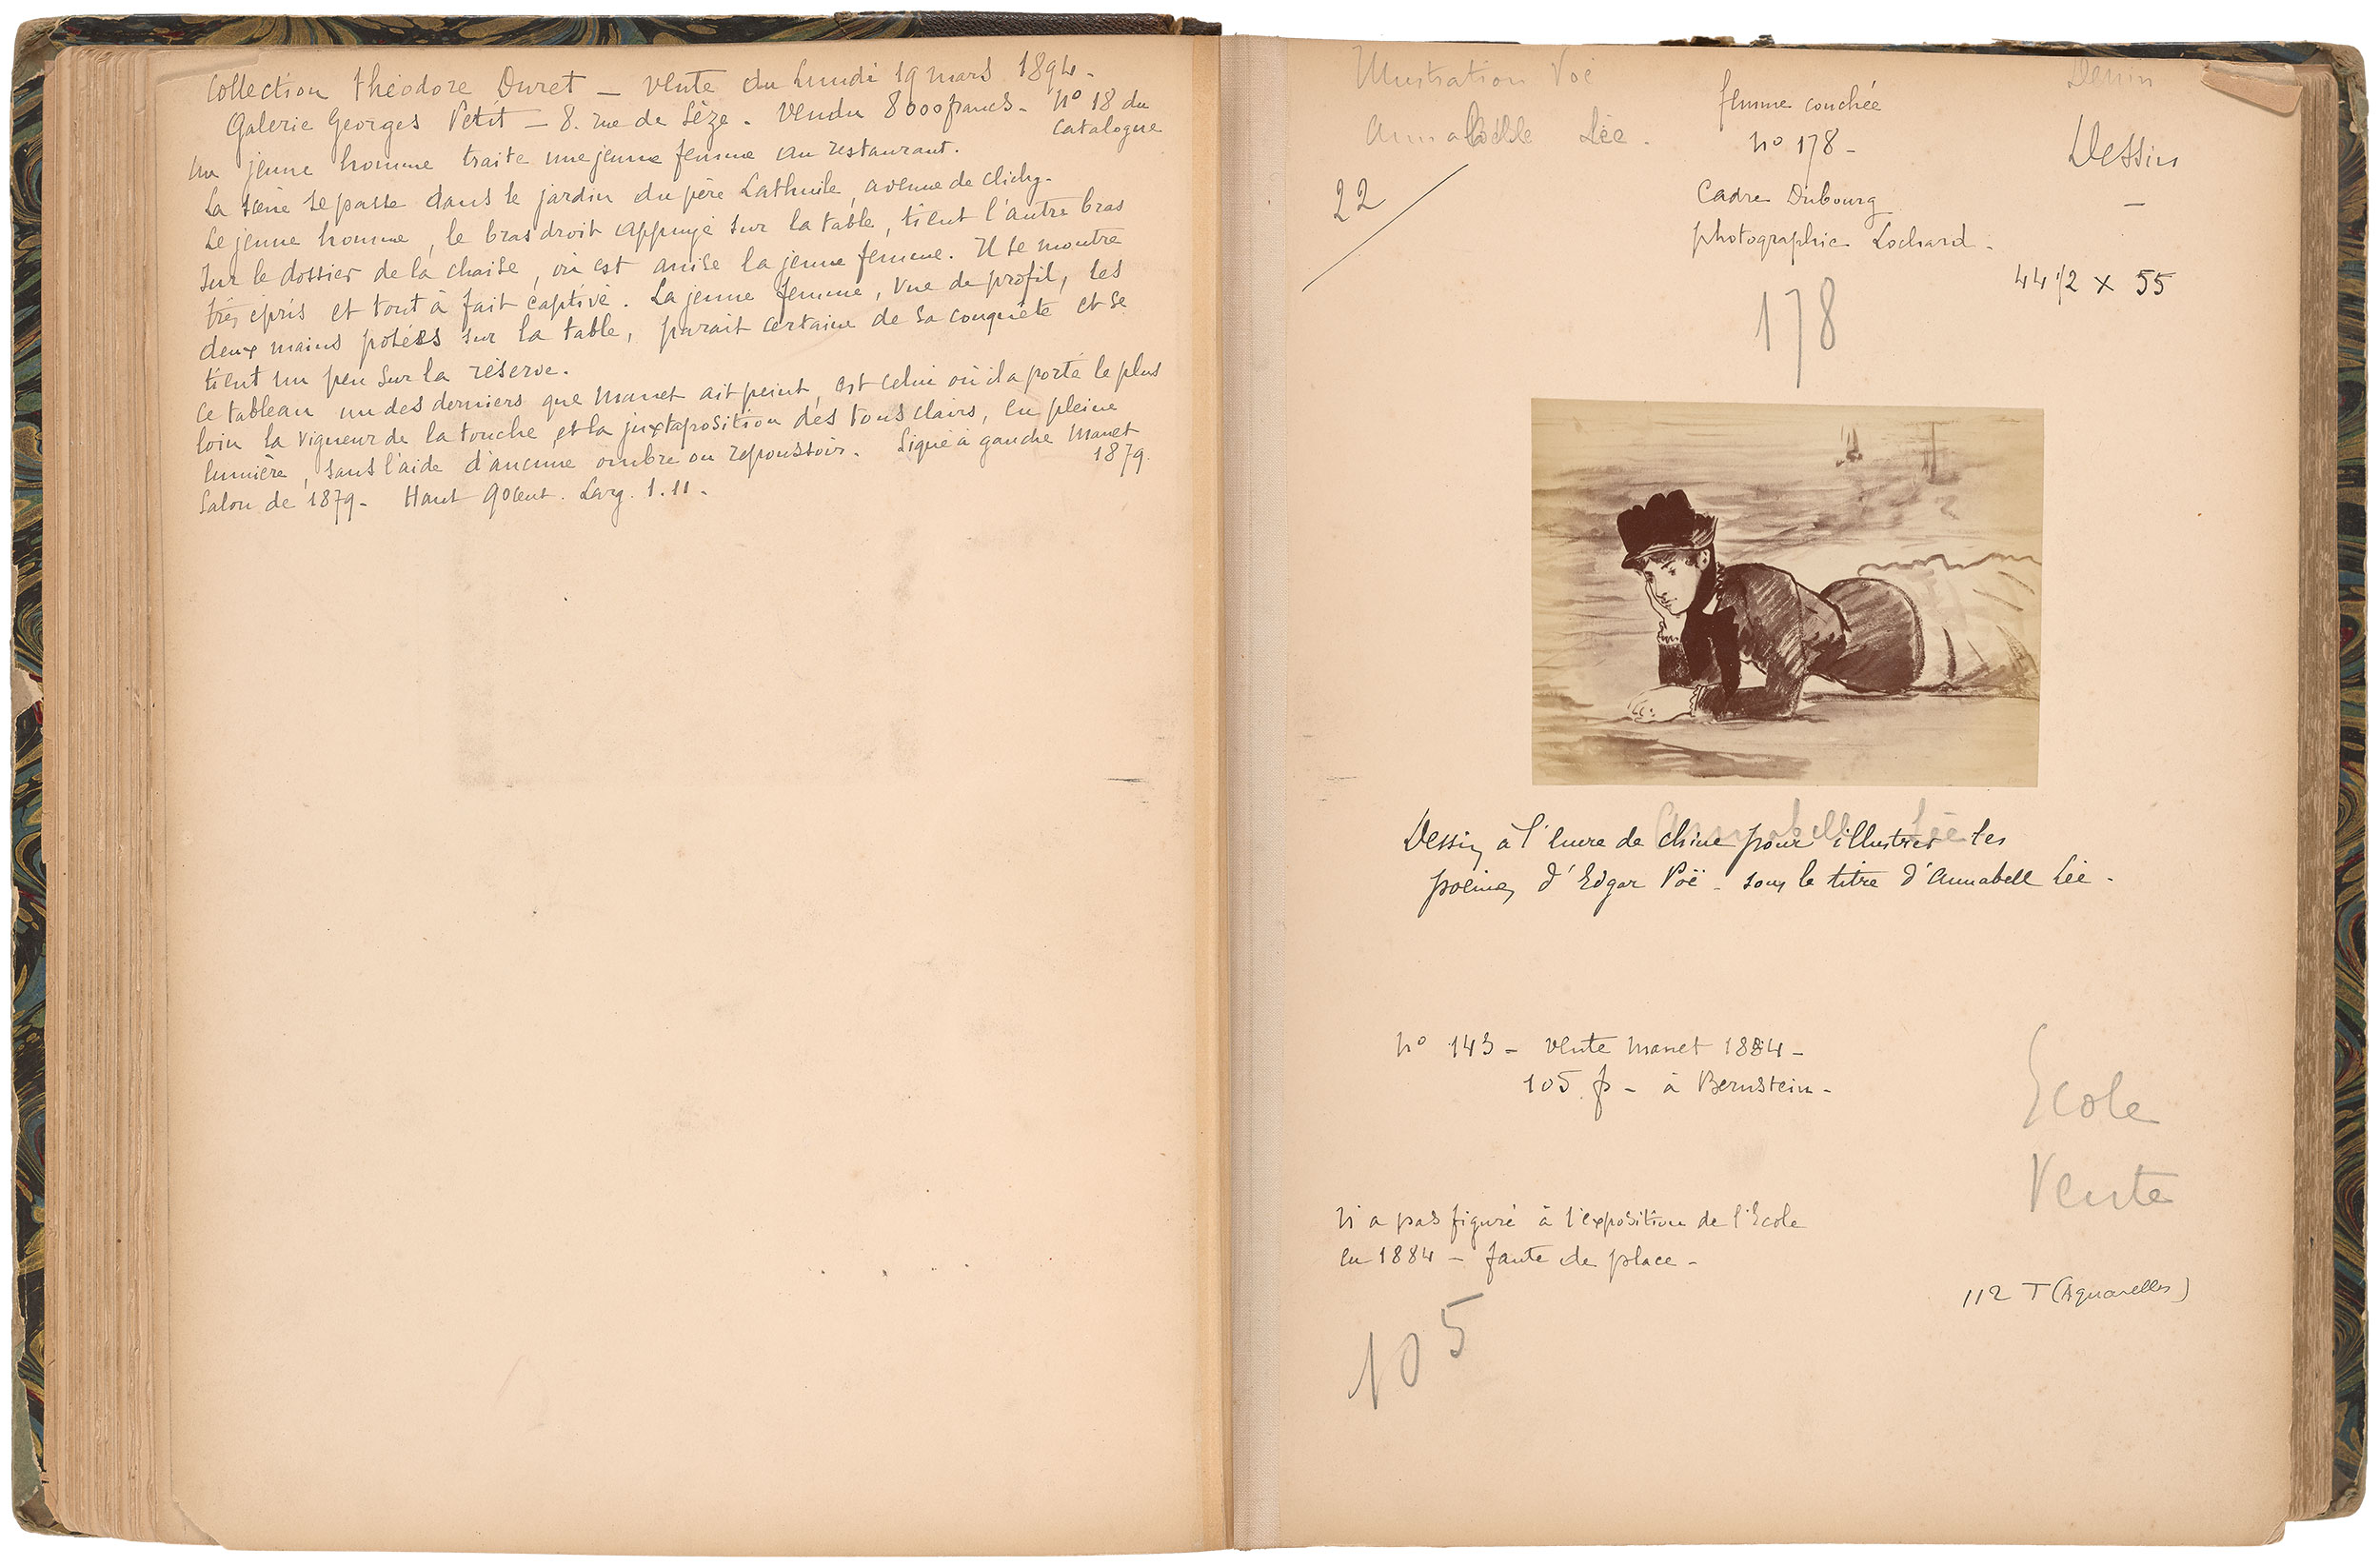 Collection théodore Duret — vente du Lundi 19 mars 1894 -
Galerie Georges Petit — 8. rue de Sèze - Vendu 8000 francs - nº 18 du
catalogue
un jeune homme traite une jeune femme au restaurant.
La scène se passe dans le jardin du père Lathuile, avenue de clichy.
Le jeune homme, le bras droit appuyé sur la table, tient l'autre bras
sur le dossier de la chaise, où est assise la jeune femme. Il se montre
très épris et tout à fait captivé. La jeune femme, vue de profil, les
deux mains posées sur la table, parait certaine de sa conquête et se
tient un peu sur la réserve.
Ce tableau un des derniers que Manet ait peint, est celui où il a porté le plus
loin la vigueur de la touche, et la juxtaposition des tons clairs, en pleine
lumière, sans l'aide d'aucune ombre ou repoussoir. Signé à gauche Manet
1879.
Salon de 1879 - Haut 90 cent. Larg. 1.11 -
Illustration Poë
Lée.
22
femme couchée
nº 178 -
Cadre Dubourg
photographie Lochard -
178
Dessin
Dessin
—
44 1/2 x 55
Annabell Lée
Dessin à l'encre de chine pour illustrer les
poèmes d'Edgar Poë - sous le titre d'Annabell Lée -
nº 143 - vente Manet 1884 -
105 f - à Bernstein -
Ecole
Vente
N'a pas figuré à l'exposition de l'Ecole
en 1884 - faute de place -
112 T (Aquarelles)
105